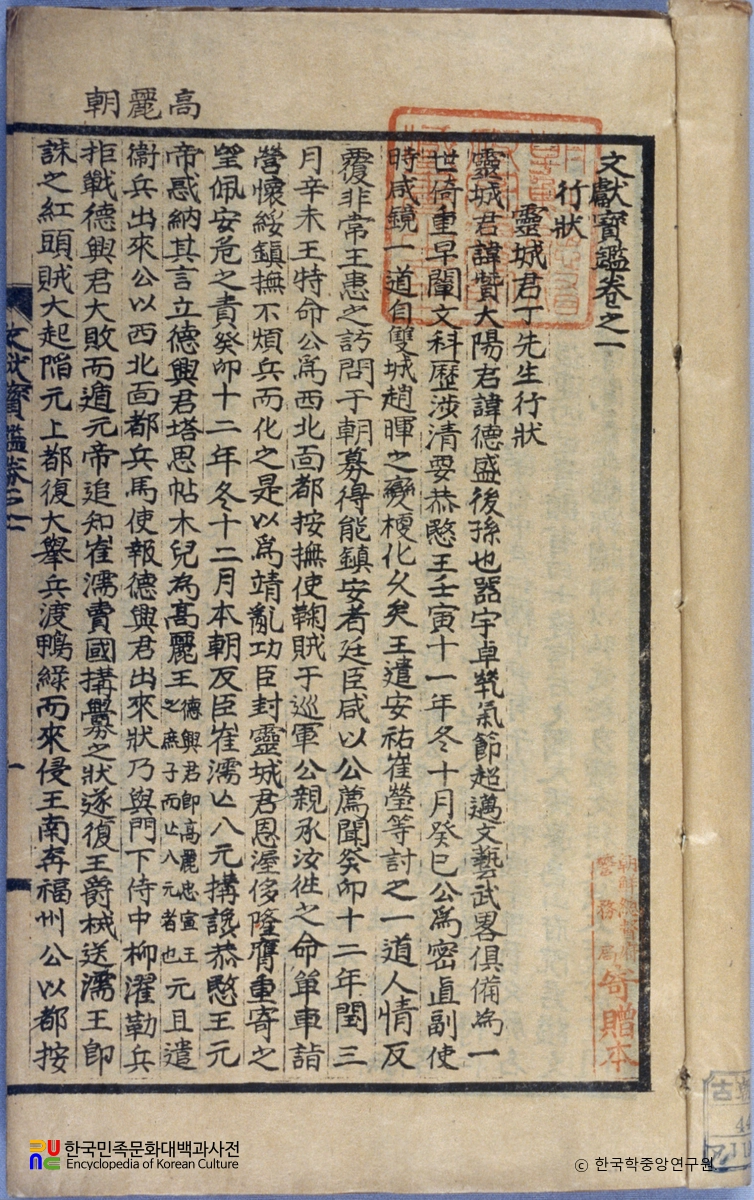 高麗朝
文獻寶鑑卷之一
行狀
靈城君丁先生行狀
靈城君諱贊大陽君諱德盛後孫也器宇卓犖氣節超邁文藝武畧俱備為一
世倚重早闡文科歷涉清要恭愍王壬寅十一年冬十月癸巳公為密直副使
時咸鏡一道自雙城趙暉之變梗化久矣王遣安祐崔瑩等討之一道人情反
覆非常王患之訪問于朝募得能鎮安者廷臣咸以公薦聞癸卯十二年閏三
月辛未王特命公為西北面都按撫使鞠賊于巡軍公親承汝徃之命單車詣
營懷綏鎮撫不煩兵而化之是以為靖亂功臣封靈城君恩渥侈隆膺重寄之
望佩安危之責癸卯十二年冬十二月本朝反臣崔濡亡入元搆讒恭愍王元
帝惑納其言立德興君塔思帖木兒為高麗王德興君卽高麗忠宣王之庶子而亡入元者也元且遣
衛兵出來公以西北面都兵馬使報德興君出來狀乃與門下侍中柳濯勒兵
拒戰德興君大敗而遁元帝追知崔濡賣國搆釁之狀遂復王爵械送濡王卽
誅之紅頭賊大起陷元上都復大擧兵渡鴨綠而來侵王南奔福州公以都按
文獻寶鑑卷之一
一
朝鮮總督府
警務局
寄贈本
古
한국민족문화대백과사전
Encyclopedia of Korean Culture
ⓒ 한국학중앙연구원